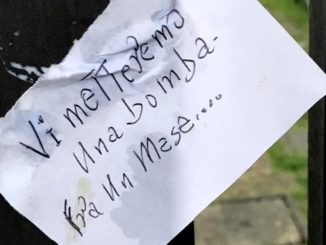 Vi metteremo
una bomba.
fra un mese....